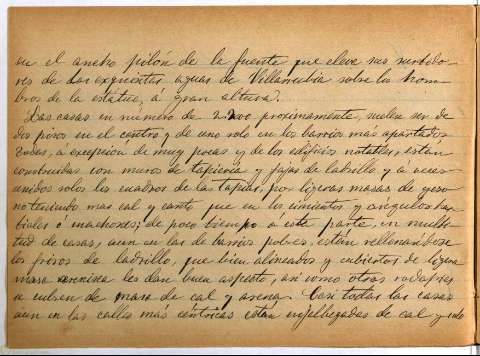 en el ancho pilón de la fuente que eleva sus surtido-
res de las exquisitas aguas de Villarrubia sobre los hom-
bros de la estatua, á gran altura.
Las casas en numero de 2.200 proximamente, suelen ser de
dos pisos en el centro y de uno solo en los barrios mas apartados
todas, á excepción de muy pocas y de los edificios notables, están
construidas con muros de tapieria y fajas de ladrillo y á veces
unidos solos los cuadros de las tapias, por ligeras masas de yeso
no teniendo mas cal y canto que en los cimientos y angulos
ó machones; de poco tiempo á esta parte, en multi-
tud de casas, aun en las de barrios pobres, están rellenandose
los frisos de ladrillo, que bien alineados y cubiertos de ligera
masa arenisca les dan buen aspecto, así como otros rodapies
se cubren de masa de cal y arena. Casi todas las casas
aun en las calles mas centricas están enjalbegadas de cal y